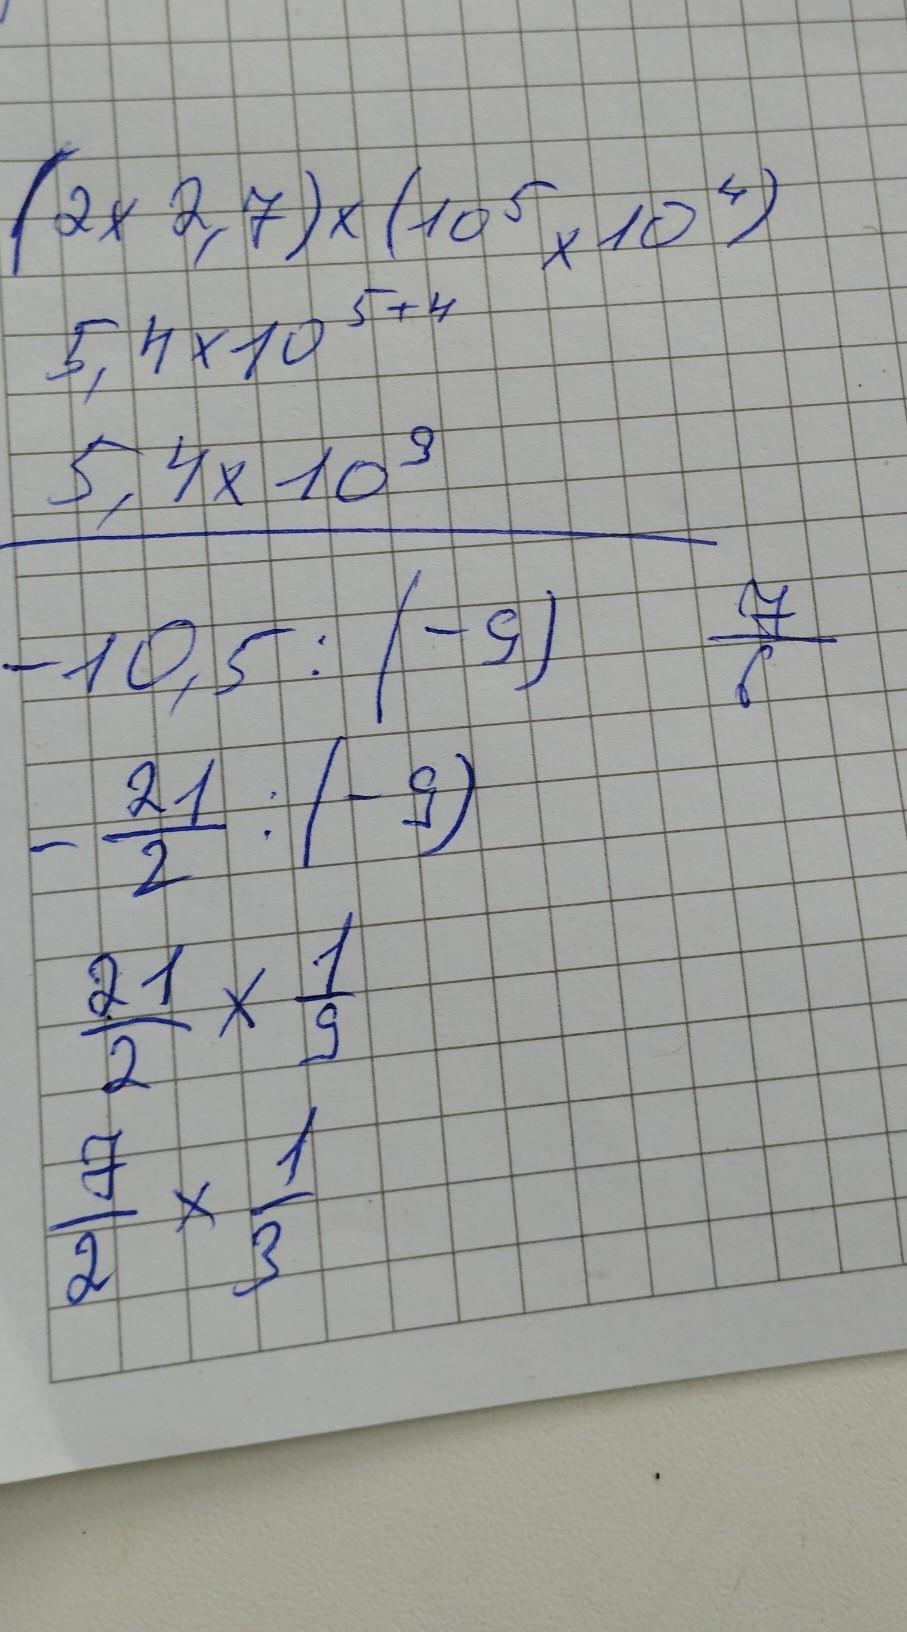 (2x 2,7)x(10⁵ x 10⁴)
5,4x10⁵⁺⁴
5,4x10⁹
-10,5:(-9) 7/6
-21/2:(-9)
21/2 x 1/9
7/2 x 1/3